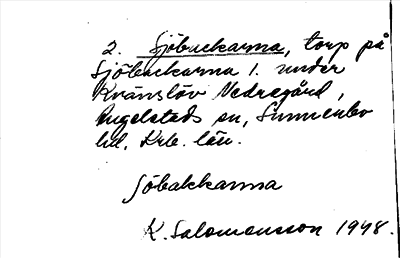 2. Sjöbackarna, torp på
Sjöbackarna 1. under
Kvänslöv Nedregård,
Angelstads sn, Sunnerbo
hd, Krb. län.
Söbakkarna
K. Salomonsson 1948.